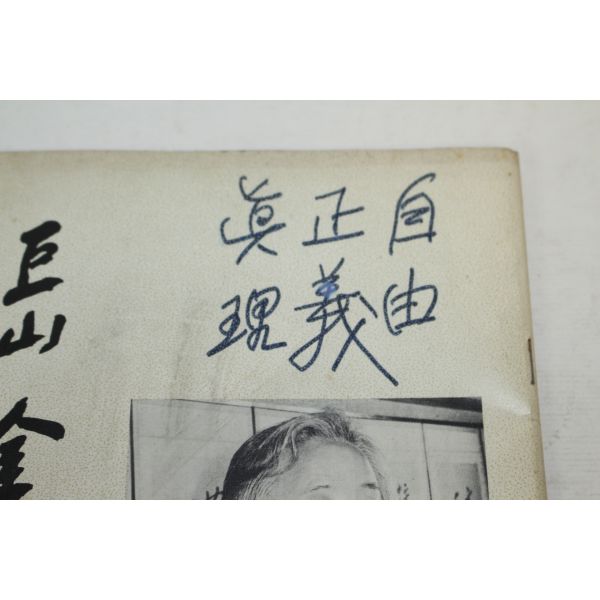 自由
正義
眞理
巨山
金